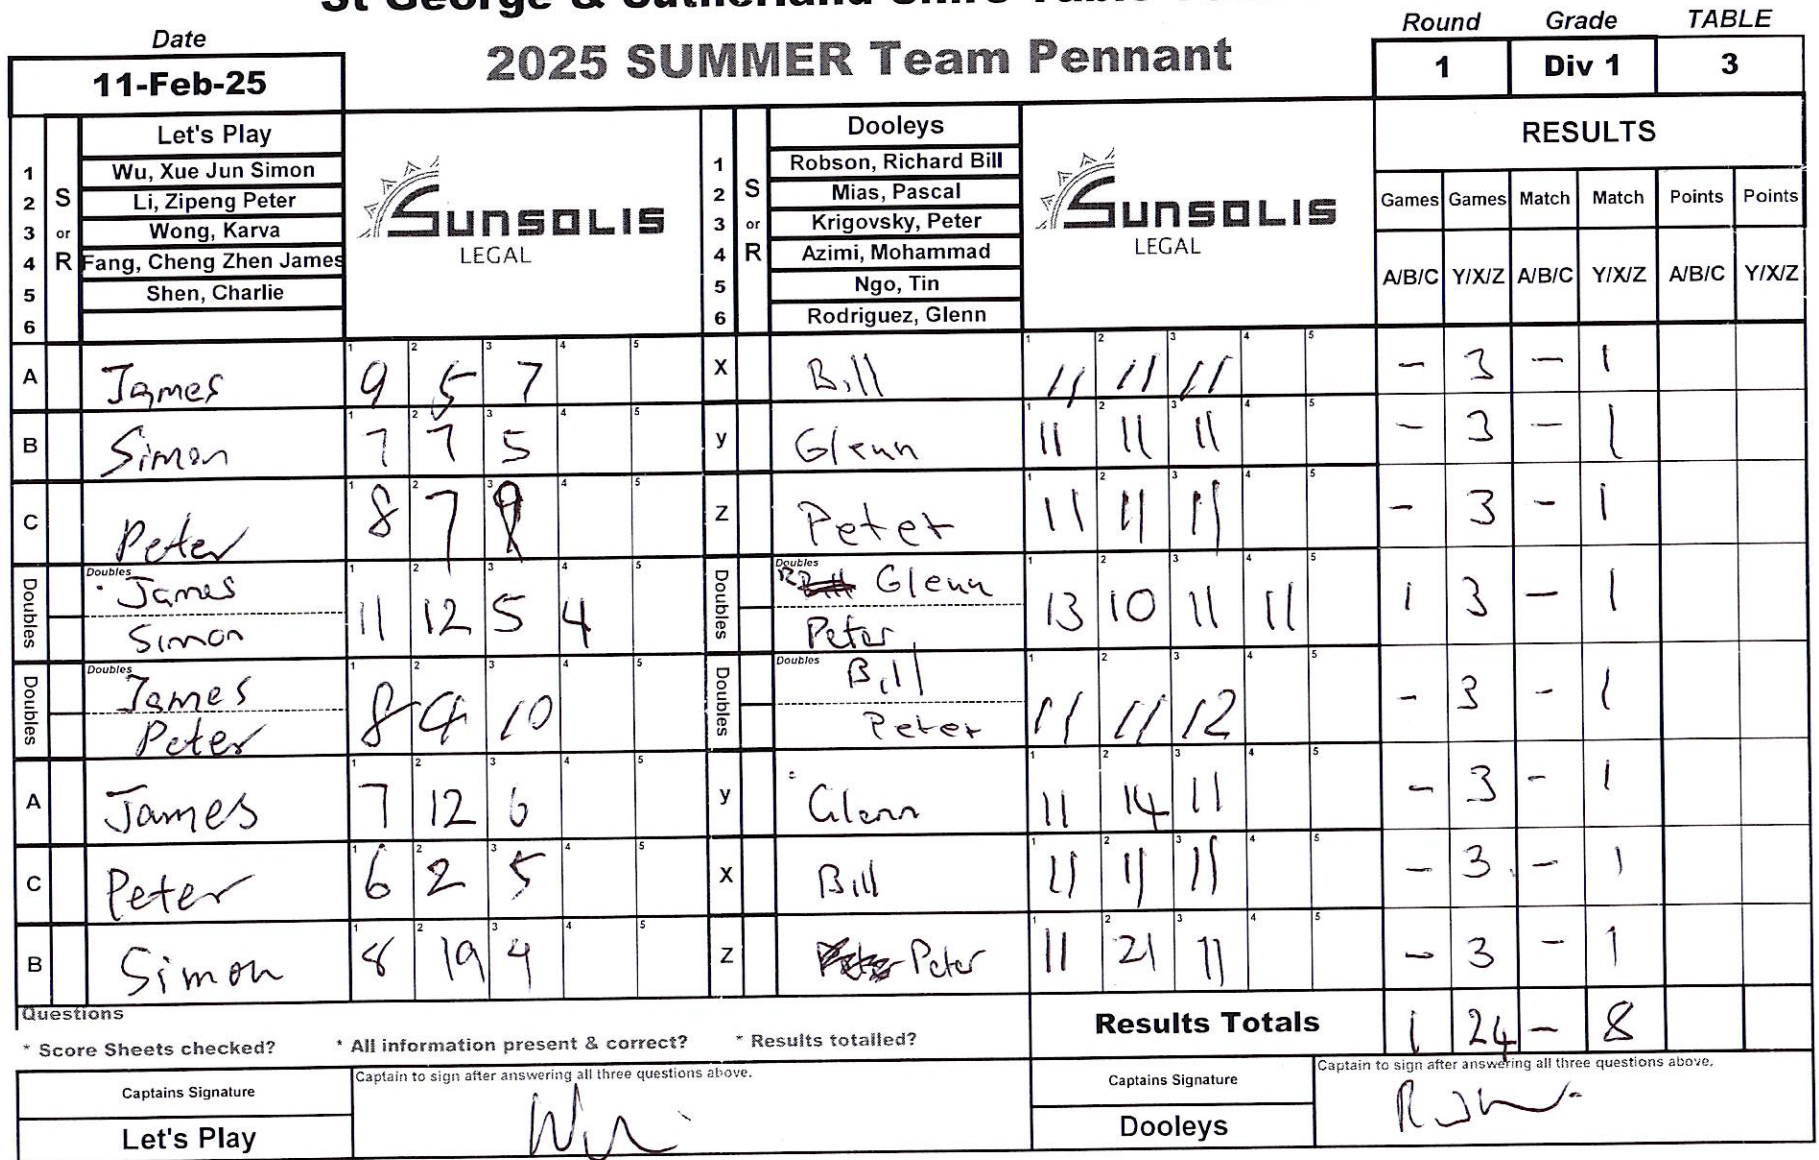 2025 SUMMER Team Pennant
Date
11-Feb-25
Round Grade TABLE
1 Div 1 3
S or R
1 2 3 4 5 6
Let's Play
Wu, Xue Jun Simon
Li, Zipeng Peter
Wong, Karva
Fang, Cheng Zhen James
Shen, Charlie
SUNSOLIS
LEGAL
1 2 3 4 5 6
S or R
Dooleys
Robson, Richard Bill
Mias, Pascal
Krigovsky, Peter
Azimi, Mohammad
Ngo, Tin
Rodriguez, Glenn
SUNSOLIS
LEGAL
RESULTS
Games Games Match Match Points Points
A/B/C Y/X/Z A/B/C Y/X/Z A/B/C Y/X/Z
A James 9 5 7 X Bill 11 11 11 - 3 - 1
B Simon 7 7 5 y Glenn 11 11 11 - 3 - 1
C Peter 8 7 9 Z Peter 11 11 11 - 3 - 1
Doubles James Simon 11 12 5 4 Doubles Glenn Peter 13 10 11 11 1 3 - 1
Doubles James Peter 8 9 10 Doubles Bill Peter 11 11 12 - 3 - 1
A James 7 12 6 y Glenn 11 14 11 - 3 - 1
C Peter 6 2 5 X Bill 11 11 11 - 3 - 1
B Simon 8 19 9 Z Peter 11 21 11 - 3 - 1
Questions
* Score Sheets checked? * All information present & correct? * Results totalled?
Results Totals 1 24 - 8
Captains Signature
Let's Play
Captain to sign after answering all three questions above.
Captains Signature
Dooleys
Captain to sign after answering all three questions above.